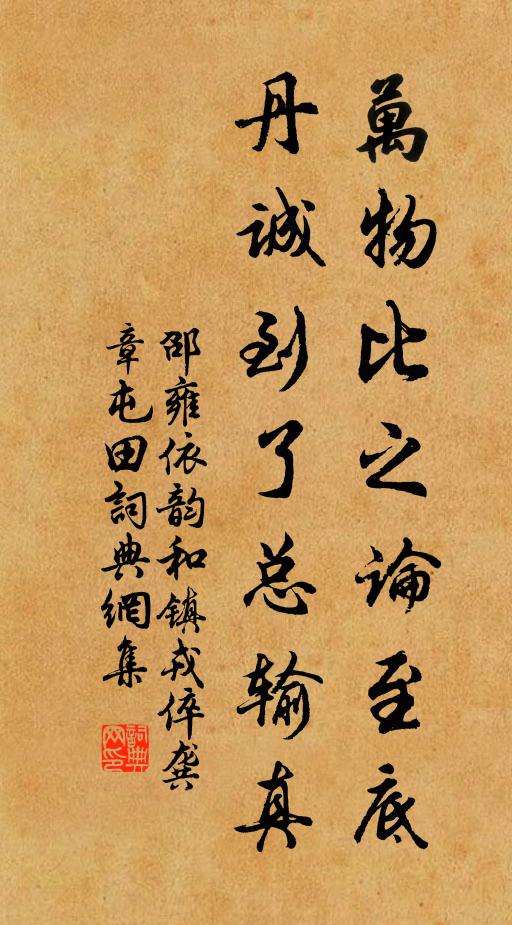 萬物比之論至底
丹誠到了总输真
邵雍依韵和镇戎倅龚
章屯田詞典網集
詞典
网印